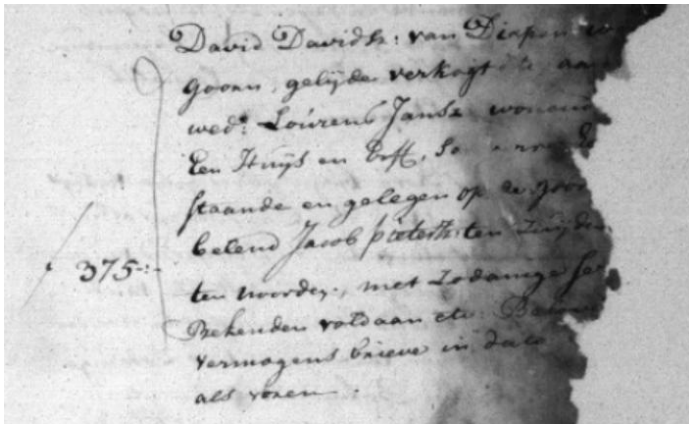 David Davidsz: van Diepen
Gooan, gelijde verkogt te aan
wed.e Lourens Jansz wonend
Een Huijs en Erff, so
staande en gelegen op de goor
belend Jacob pietersz ten Zuijden
375-:- ten noorden, met zodanige ser
Bekenden voldaan etc: 
vermogens brieve in dato
als voren.